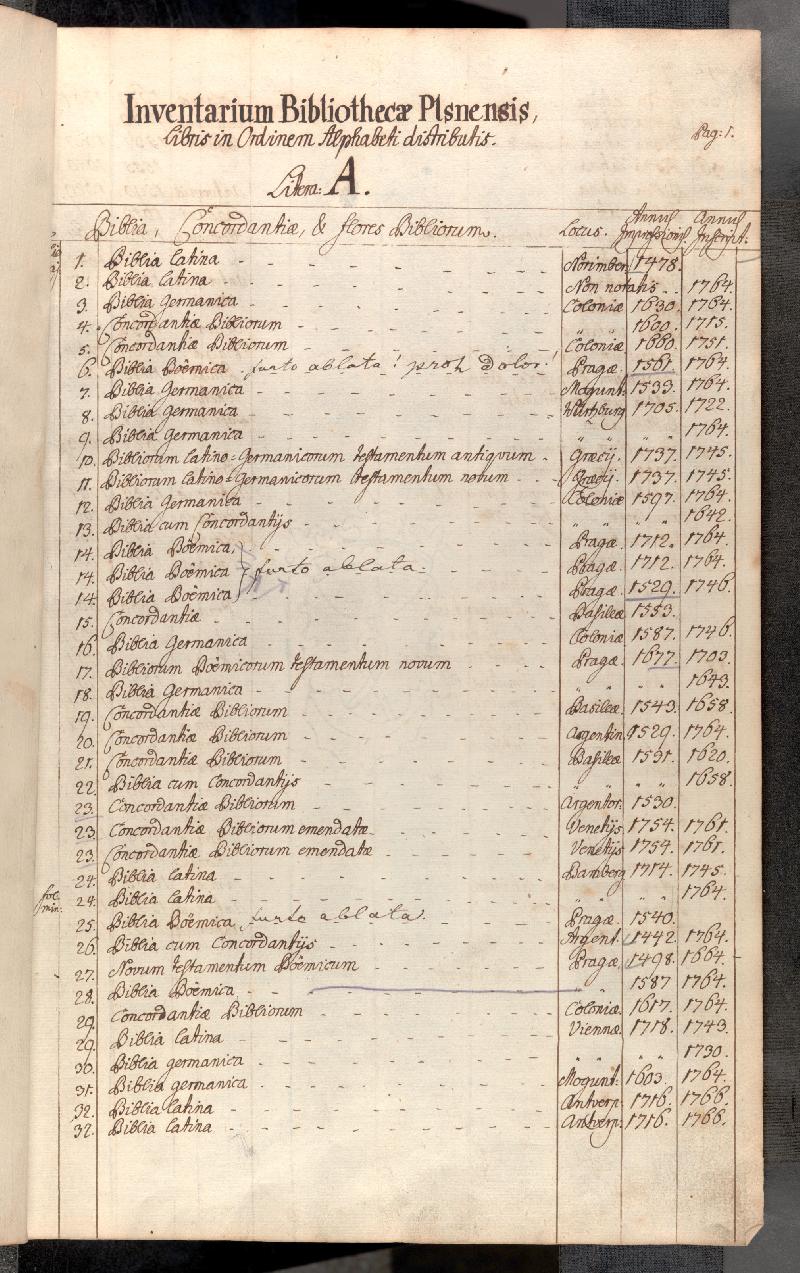 Inventarium Bibliothecæ Plsnensis,
libris in Ordinem Alphabeti distributis.
Pag: 1.
Litera: A.
Biblia, Concordantiæ, & flores Bibliorum. Locus. Annus Impressionis. Annus Inscript:
1. Biblia latina - - - Norimber. 1478.
2. Biblia latina - - - Non notatis . . 1764.
3. Biblia Germanica - - - Coloniæ 1630. 1764.
4. Concordantiæ Bibliorum - - - „ „ 1600. 1715.
5. Concordantiæ Bibliorum - - - Coloniæ 1660. 1751.
6. Biblia Boëmica - furto ablata! proh dolor! Pragæ. 1561. 1764.
7. Biblia Germanica - - - Mogunt: 1533. 1764.
8. Biblia Germanica - - - Würtzburg 1705. 1722.
9. Biblia Germanica - - - „ „ „ „ 1764.
10. Bibliorum latino-Germanicorum testamentum antiqvum - Græcij. 1737. 1745.
11. Bibliorum latino-Germanicorum testamentum novum - - - Græcij. 1737. 1745.
12. Biblia Germanica - - - Coloniæ 1597. 1764.
13. Biblia cum Concordantijs - - - „ „ „ „ 1642.
14. Biblia Boëmica, - - - Pragæ. 1712. 1764.
14. Biblia Boëmica } furto ablata. Pragæ. 1712. 1764.
14. Biblia Boëmica - - - Pragæ. 1529. 1746.
15. Concordantiæ - - - Basileæ 1553.
16. Biblia Germanica - - - Coloniæ 1587. 1746.
17. Bibliorum Boëmicorum testamentum novum - - - Pragæ. 1677. 1703.
18. Biblia Germanica - - - „ „ „ „ 1643.
19. Concordantiæ Bibliorum - - - Basileæ. 1543. 1658.
20. Concordantiæ Bibliorum - - - Argentin. 1529. 1764.
21. Concordantiæ Bibliorum - - - Basileæ 1531. 1620.
22. Biblia cum Concordantijs - - - „ „ „ „ 1658.
23. Concordantiæ Bibliorum - - - Argentor. 1530.
23. Concordantiæ Bibliorum emendatæ - - - Venetijs 1754. 1761.
23. Concordantiæ Bibliorum emendatæ - - - Venetijs 1754. 1761.
24. Biblia latina - - - Bamberg 1714. 1745.
fol. min: 24. Biblia latina - - - „ „ „ „ 1764.
25. Biblia Boëmica, furto ablata. Pragæ. 1540.
26. Biblia cum Concordantijs - - - Argent. 1442. 1764.
27. Novum testamentum Boëmicum - - - Pragæ, 1498. 1664.
28. Biblia Boëmica - - - „ 1587 1764.
29. Concordantiæ Bibliorum - - - Coloniæ. 1617. 1764.
29. Biblia latina - - - Viennæ. 1718. 1743.
30. Biblia germanica - - - „ „ „ „ 1730.
31. Biblia germanica - - - Mogunt: 1603. 1764.
32. Biblia latina - - - Antverp: 1716. 1766.
32. Biblia latina - - - Antverp: 1716. 1766.